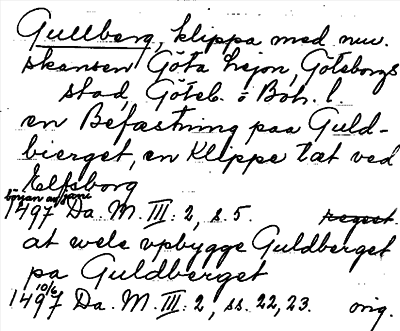 Gullberg, klippa med nuv.
skansen Göta Lejon, Göteborgs
stad, Göteb. o Boh. l.
en Befæstning paa Guld-
bierget, en Klippe tæt ved
Elfsborg
början av juni
1497 Da. M. III: 2, s. 5. regest.
at wele vpbygge Guldberget
pa Guldberget
10/6
1497 Da. M. III: 2, ss. 22, 23. orig.